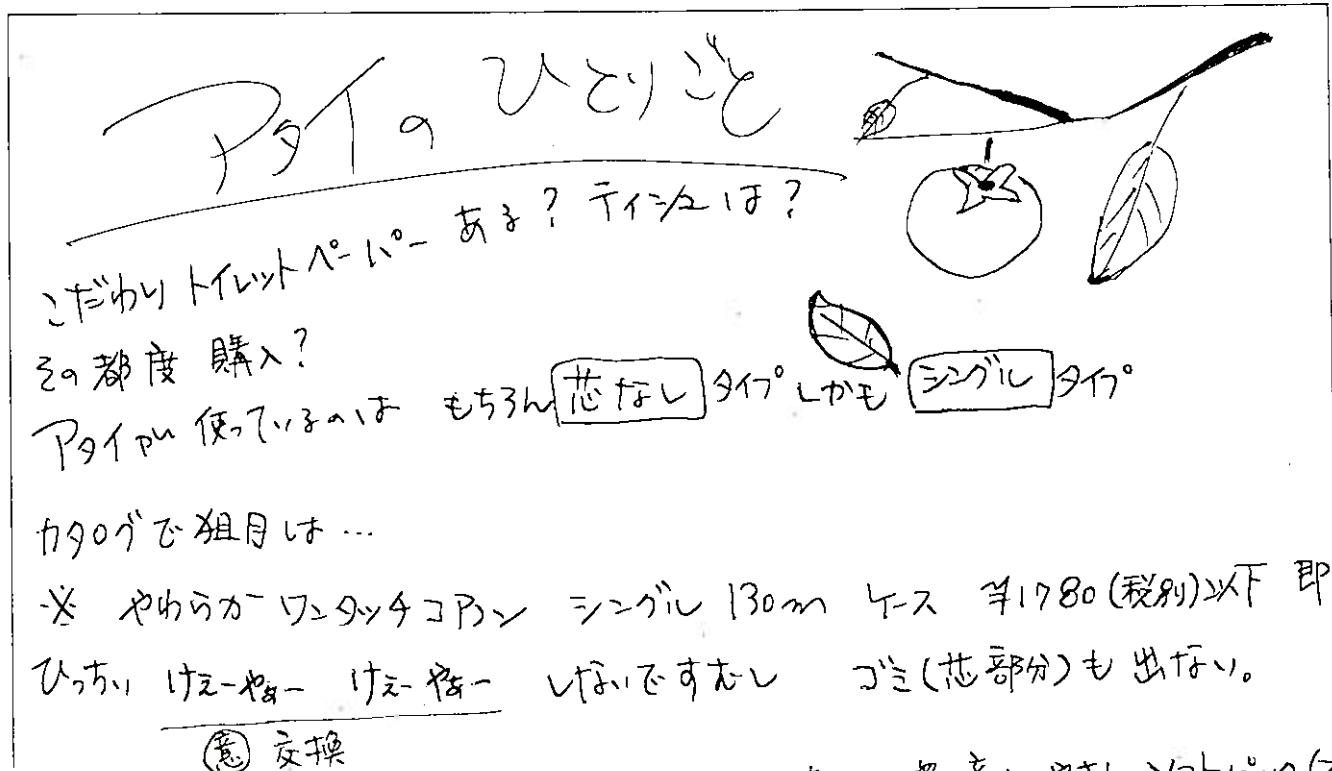 アタイの ひとりごと
こだわり トイレットペーパー ある? ティシュは?
その都度 購入?
アタイが 使っているのは もちろん 芯なし タイプ しかも シングル タイプ
カタログで狙目は…
※ やわらか ワンタッチコアノン シングル 130m ケース ¥1780(税別)以下 即
ひっちぃ けぇーやぁー けぇーやぁー しないですむし ゴミ(芯部分)も 出ない。
意 交換
ソフトパック